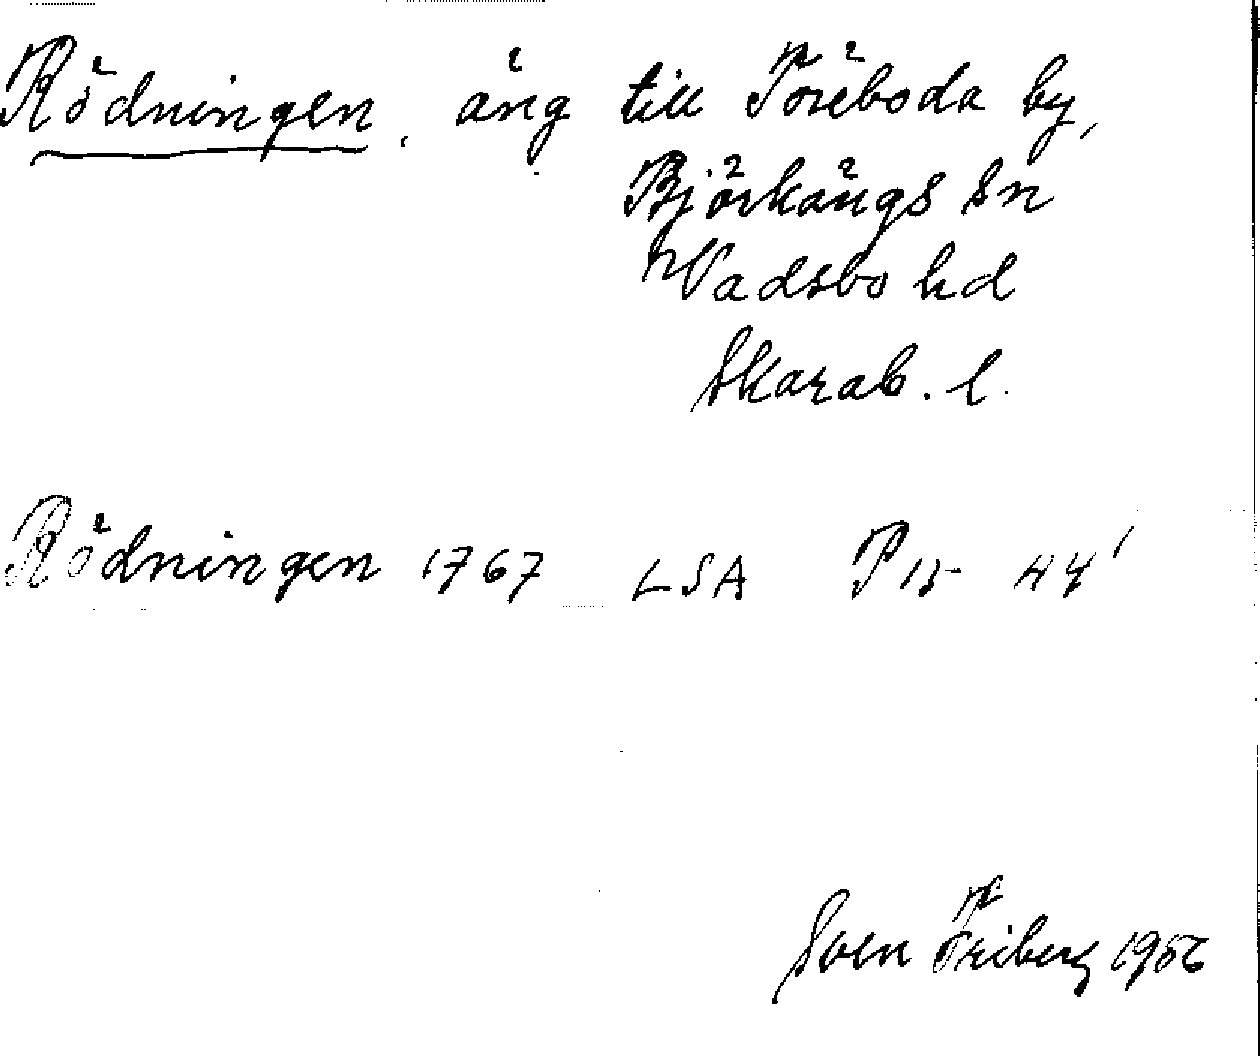 Rödningen, äng till Töreboda by,
Björkängs sn
Vadsbo hd
Skarab. l.
Rödningen 1767 LSA P15- 44'
Sven Friberg 1956